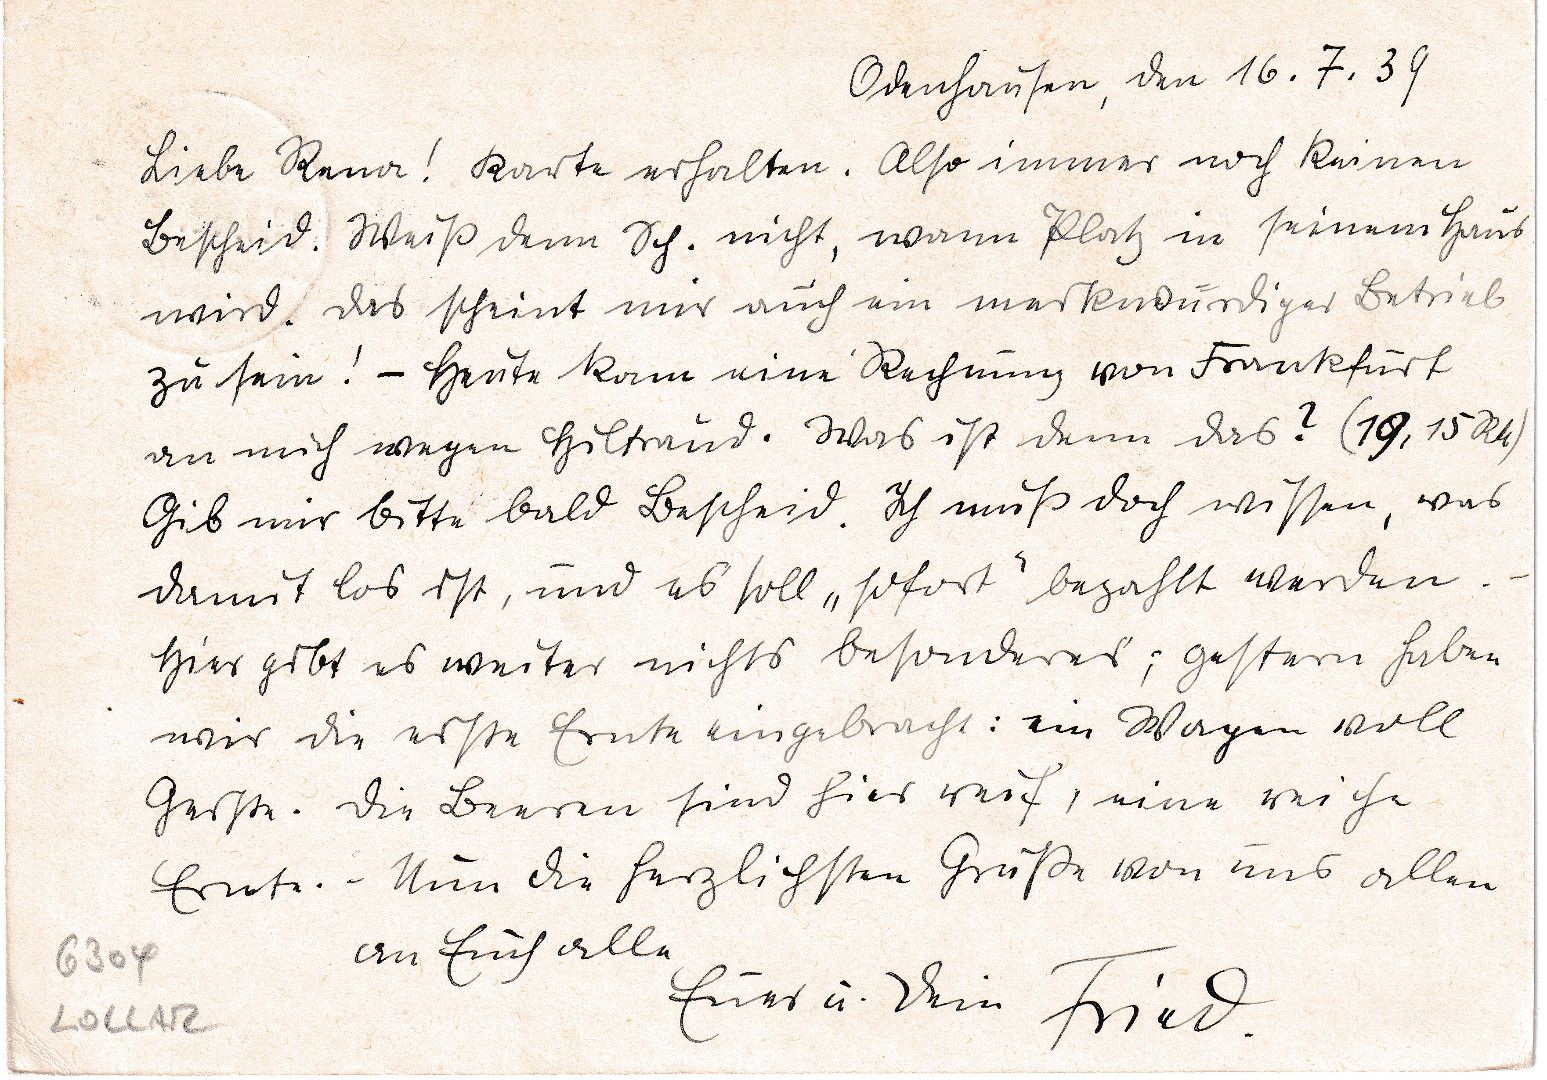 Odenhausen, den 16.7.39
Liebe Rena! Karte erhalten. Also immer noch keinen
Bescheid. Weiß denn Sch. nicht, wann Platz in seinem Haus
wird. Das scheint mir auch ein merkwürdiger Betrieb
zu sein! – Heute kam eine Rechnung von Frankfurt
an mich wegen Hiltraud. Was ist denn das? (19,15 RM)
Gib mir bitte bald Bescheid. Ich muß doch wissen, was
damit los ist, und es soll „sofort“ bezahlt werden. –
Hier gibt es weiter nichts besonderes; gestern haben
wir die erste Ernte eingebracht: ein Wagen voll
Gerste. Die Beeren sind hier reif, eine reiche
Ernte. – Nun die herzlichsten Grüße von uns allen
an Euch alle
Euer u. Dein Fried.
6304
LOLLAR